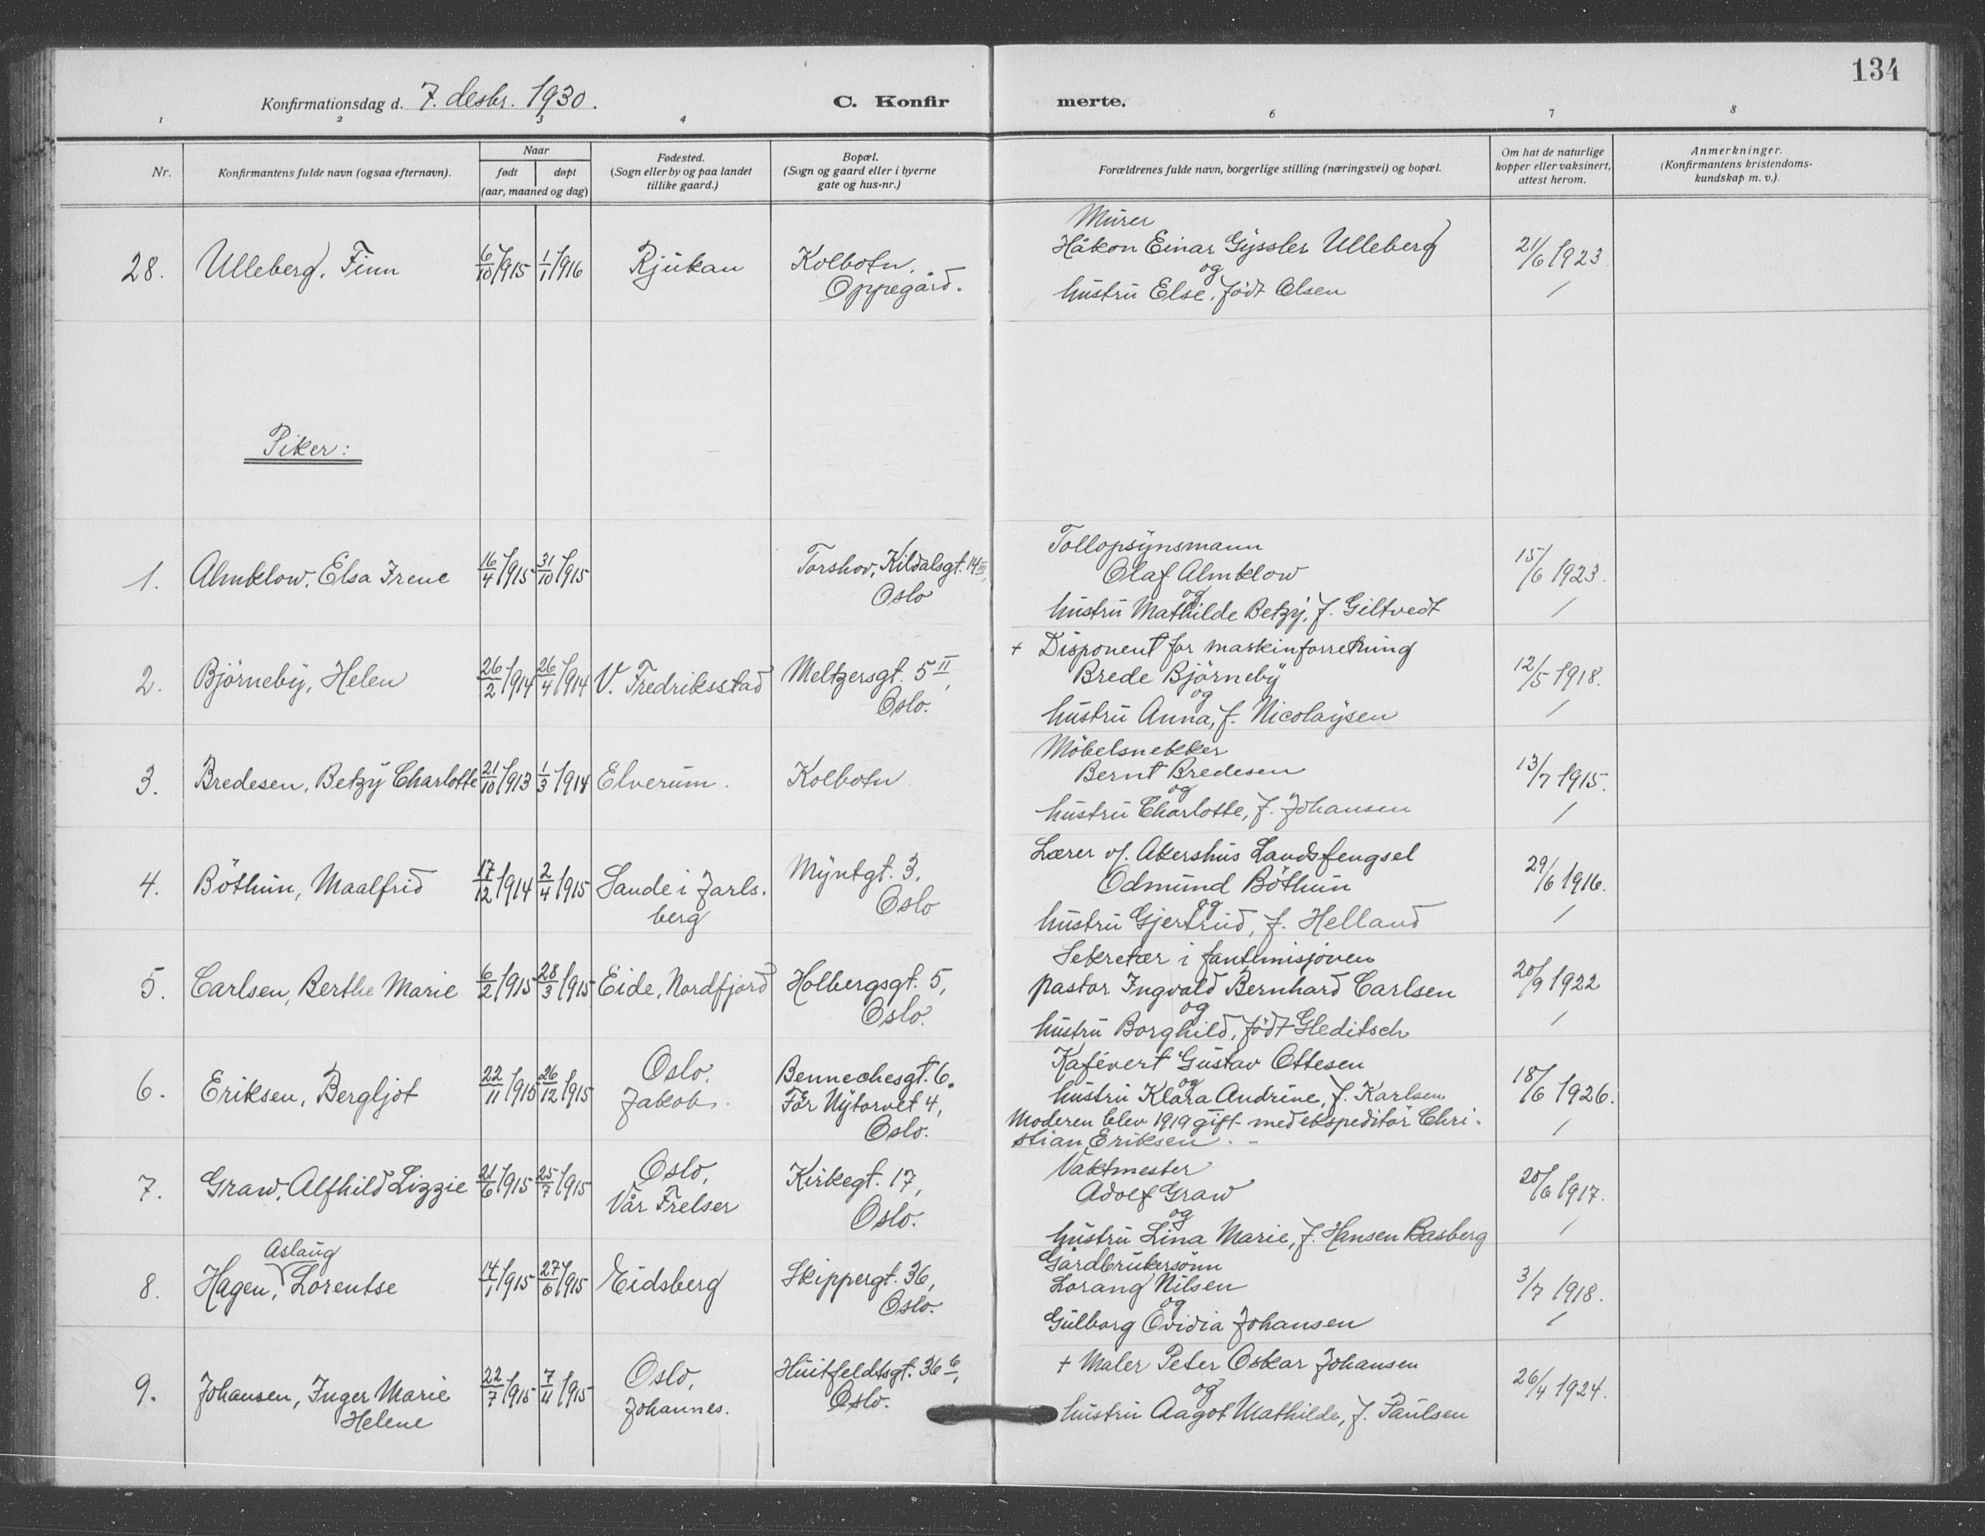 134
Konfirmationsdag d. 7. desbr. 1930.
C. Konfirmerte.
1 2 3 4 6 7 8
Nr.
Konfirmantens fulde navn (ogsaa efternavn).
Naar
født
døpt
(aar, maaned og dag)
Fødested.
(Sogn eller by og paa landet
tillike gaard.)
Bopæl.
(Sogn og gaard eller i byerne
gate og hus-nr.)
Forældrenes fulde navn, borgerlige stilling (næringsvei) og bopæl.
Om hat de naturlige
kopper eller vaksinert,
attest herom.
Anmerkninger.
(Konfirmantens kristendoms-
kundskap m. v.).
28. Ulleberg, Finn 6/10 1915 1/1 1916 Rjukan Kolbotn.
Oppegård.
Murer
Håkon Einar Gyssler Ulleberg
og
hustru Else, født Olsen
21/6 1923.
Piker:
1. Almklow, Elsa Irene 16/4 1915 31/10 1915 Torshov, Kildalsgt. 14 III,
Oslo
Tollopsynsmann
Olaf Almklow
og
hustru Mathilde Betzy, f. Giltvedt
15/6 1923.
2. Björneby, Helen 26/2 1914 26/4 1914 V. Fredriksstad Meltzersgt. 5 II,
Oslo.
+ Disponent for maskinforretning
Brede Björneby
og
hustru Anna, f. Nicolaysen
12/5 1918.
3. Bredesen, Betzy Charlotte 21/10 1913 1/3 1914 Elverum. Kolbotn
Möbelsnekker
Bernt Bredesen
og
hustru Charlotte, f. Johansen
13/7 1915.
4. Böthun, Maalfrid 17/12 1914 2/4 1915 Sande i Jarls-
berg
Myntgt. 3,
Oslo
Lærer v/. Akershus Landsfengsel
Odmund Böthun
og
hustru Gjertrud, f. Helland
29/6 1916.
5. Carlsen, Berthe Marie 6/2 1915 28/3 1915 Eide, Nordfjord Holbergsgt. 5,
Oslo.
Sekretær i fantimisjonen
pastor Ingvald Bernhard Carlsen
og
hustru Borghild, født Gleditsch
20/9 1922
6. Eriksen, Bergljot 22/11 1915 26/12 1915 Oslo.
Jakob.
Bennechesgt. 6.
Før Nytorvet 4,
Oslo.
Kafévert Gustav Ottesen
og
hustru Klara Andrine, f. Karlsen
Moderen blev 1919 gift med ekspeditör Chri-
stian Eriksen.
18/6 1926.
7. Graw, Alfhild Lizzie 21/6 1915 25/7 1915 Oslo,
Vår Frelser
Kirkegt. 17,
Oslo.
Vaktmester
Adolf Graw
og
hustru Lina Marie, f. Hansen Basberg
20/6 1917.
Aslaug
8. Hagen, Lorentse 14/1 1915 27/6 1915 Eidsberg Skippergt. 36,
Oslo.
Gårdbrukersønn
Lorang Nilsen
og
Gulborg Ovidia Johansen
3/7 1918.
9. Johansen, Inger Marie
Helene
22/7 1915 7/11 1915 Oslo,
Johannes.
Huitfeldtsgt. 36 b,
Oslo.
+ Maler Peter Oskar Johansen
og
hustru Aagot Mathilde, f. Paulsen
26/4 1924.